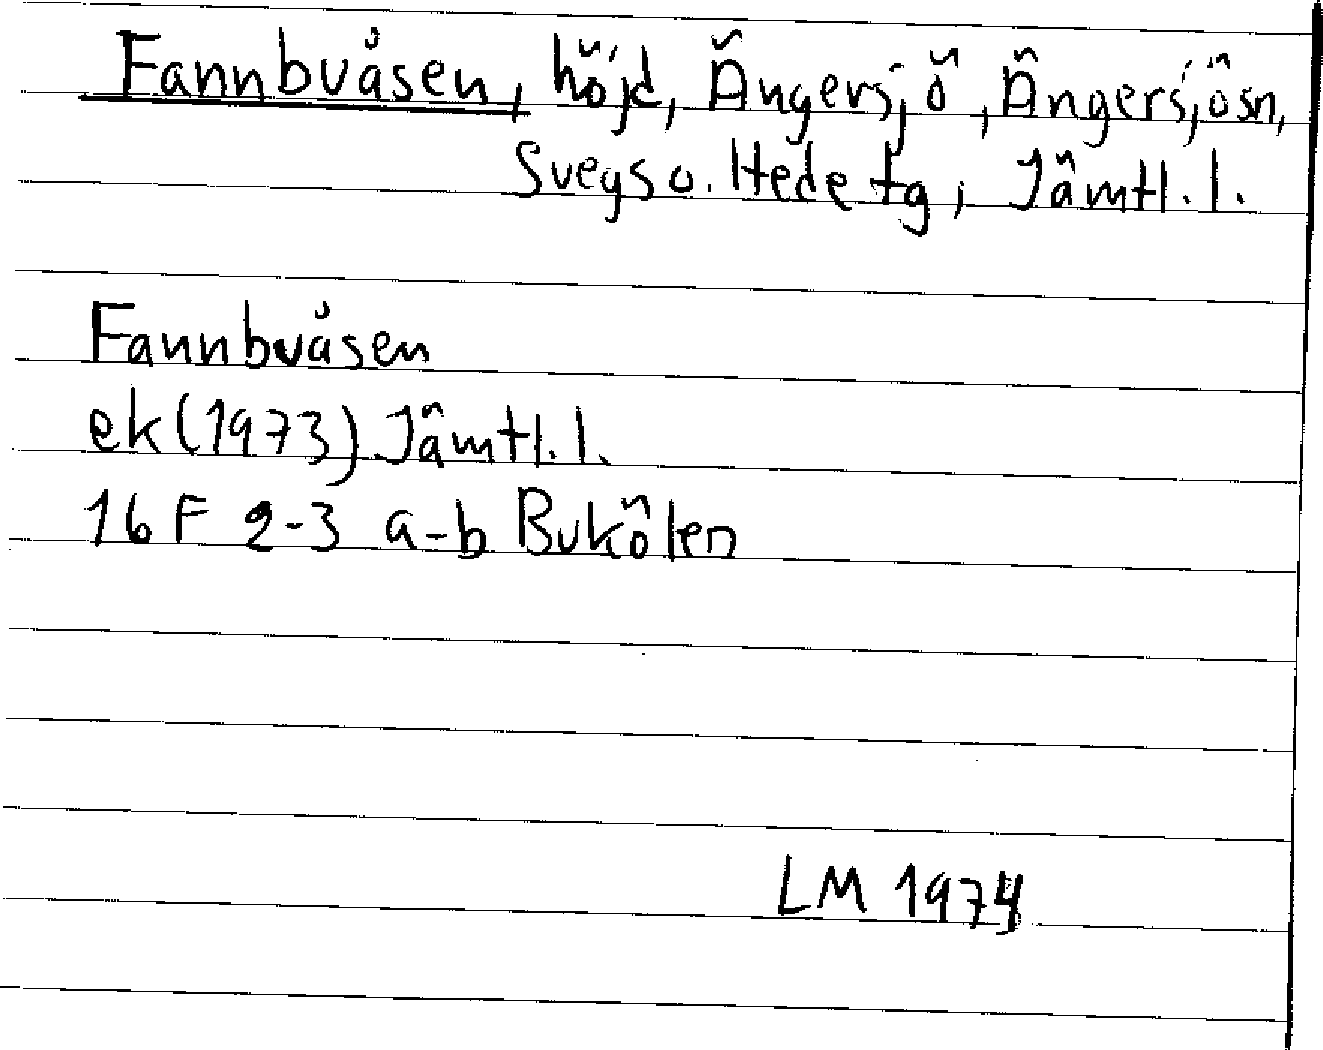 Fannbuåsen, höjd, Ängersjö, Ängersjösn,
Svegs o. Hede tg, Jämtl. l.
Fannbuåsen
ek (1973) Jämtl. l.
16 F 2-3 a-b Bukölen
LM 1974